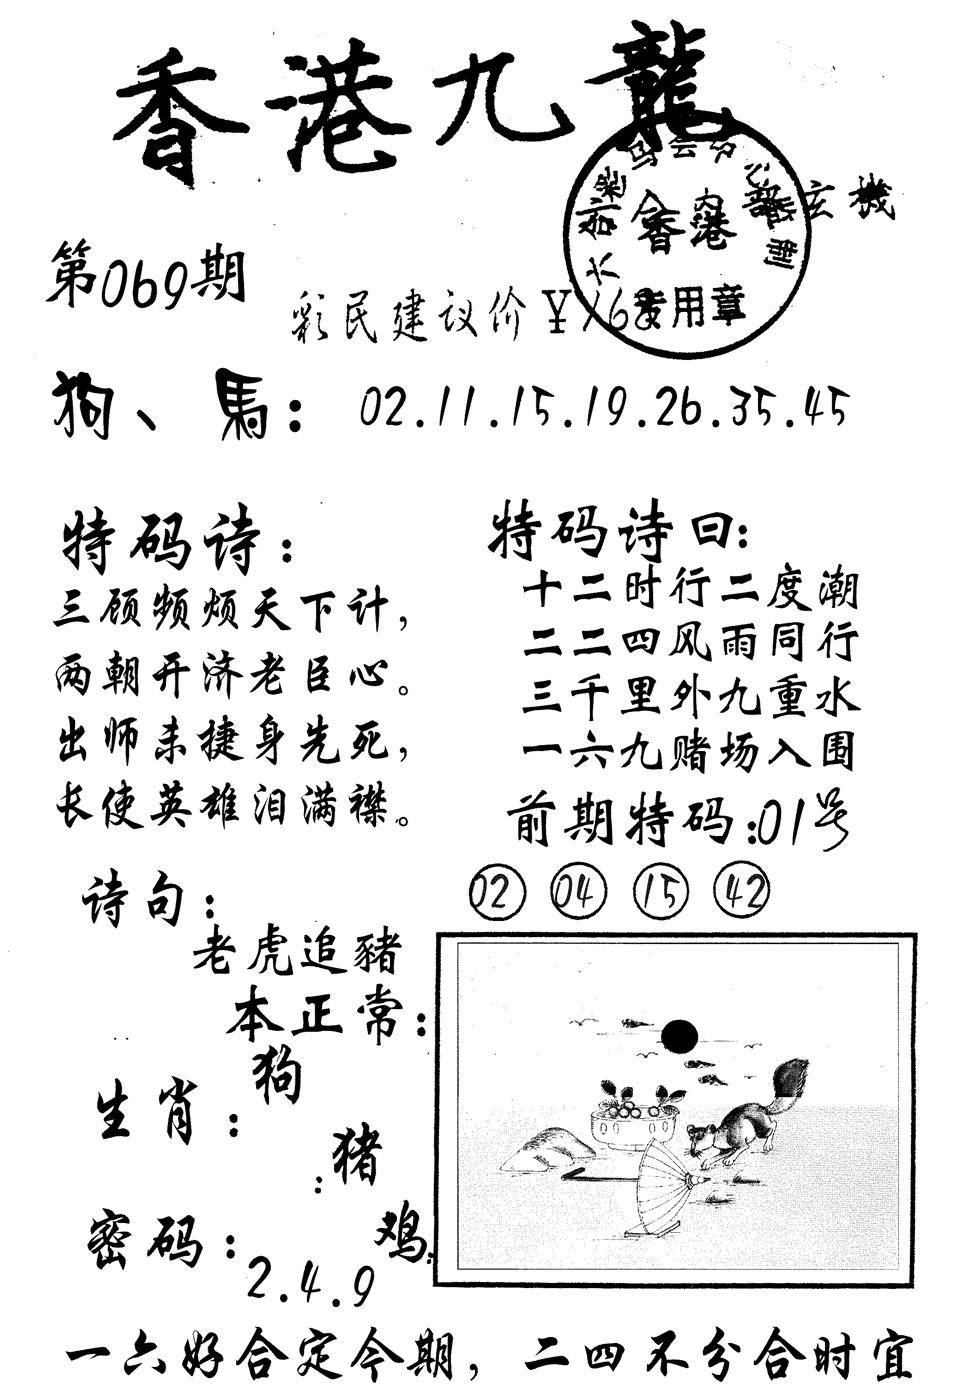 香港九龍
内部玄機
香港
专用章
第069期
彩民建议价¥168
狗、馬：02.11.15.19.26.35.45
特码诗：
三顾频烦天下计，
两朝开济老臣心。
出师未捷身先死，
长使英雄泪满襟。
特码诗曰：
十二时行二度潮
二二四风雨同行
三千里外九重水
一六九赌场入围
前期特码：01号
02 04 15 42
诗句：
老虎追豬
本正常：
狗
生肖：
：猪
密码：
鸡：
2.4.9
一六好合定今期，二四不分合时宜